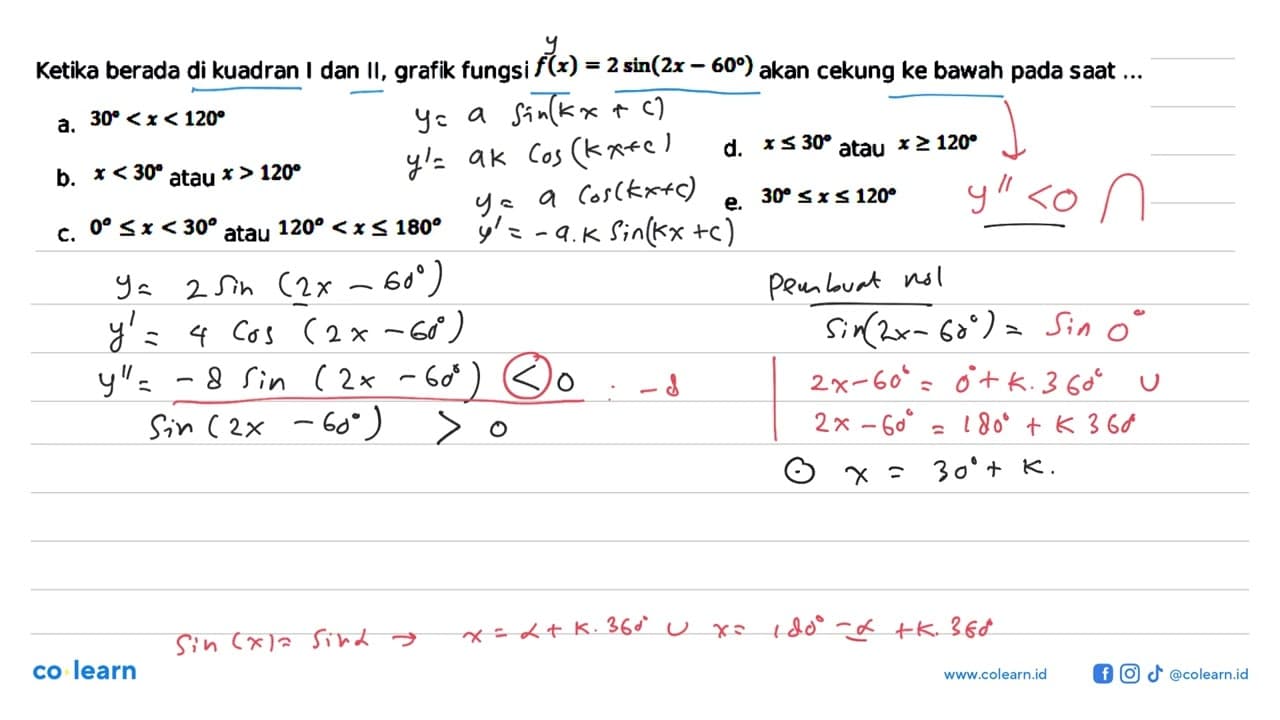 y
Ketika berada di kuadran I dan II, grafik fungsi f(x) = 2 sin(2x − 60°) akan cekung ke bawah pada saat ...
a. 30° < x < 120°
b. x < 30° atau x > 120°
c. 0° ≤ x < 30° atau 120° < x ≤ 180°
d. x ≤ 30° atau x ≥ 120°
e. 30° ≤ x ≤ 120°
y = a Sin(kx + c)
y' = ak Cos(kx+c)
y = a Cos(kx+c)
y' = -a.k Sin(kx +c)
y'' < 0 ∩
y = 2 Sin (2x - 60°)
y' = 4 Cos (2x - 60°)
y'' = -8 Sin (2x - 60°) < 0 : -8
Sin (2x - 60°) > 0
Pembuat nol
Sin(2x - 60°) = Sin 0°
2x-60° = 0° + k. 360° ∪
2x-60° = 180° + k 360°
⊙ x = 30° + k.
Sin (x) = Sin α → x = α + k. 360° ∪ x = 180° - α + k. 360°
co learn
www.colearn.id
@colearn.id